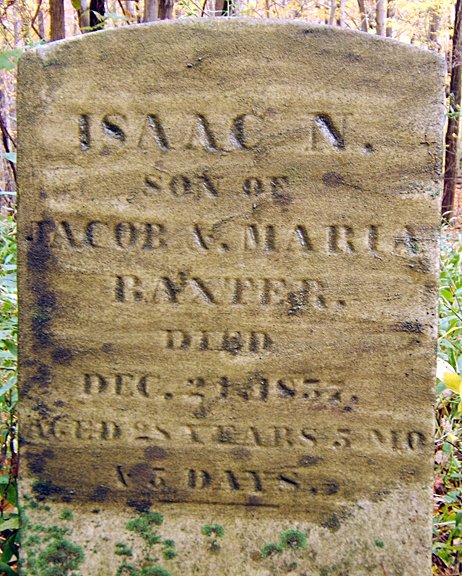 ISAAC N.
SON OF
JACOB & MARIA
BAXTER.
DIED
DEC. 24, 1857.
AGED 28 YEARS 5 MO
& 5 DAYS.